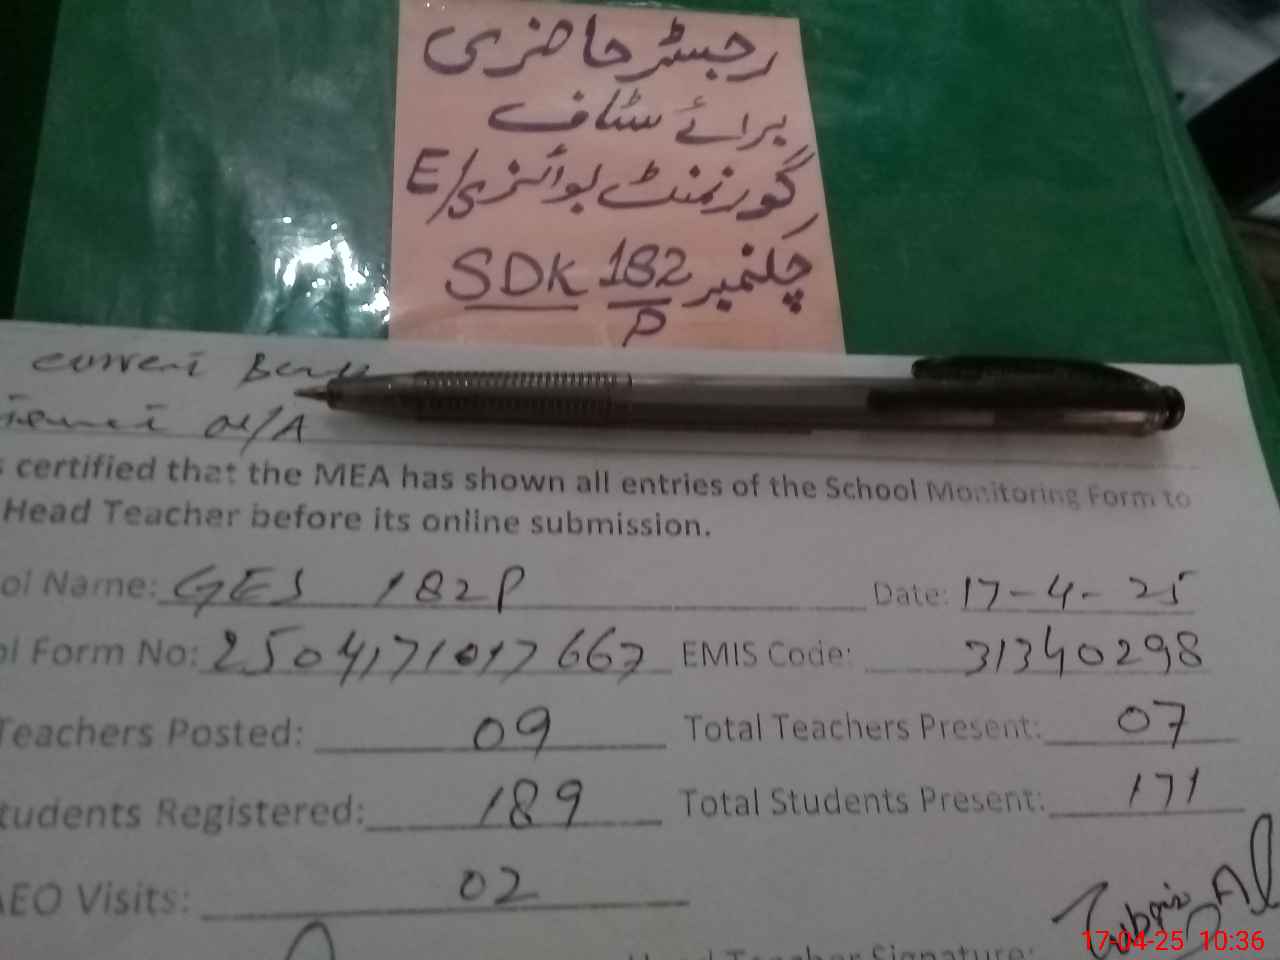 رجسٹر حاضری
برائے سٹاف
گورنمنٹ بوائز E/S
چکنمبر 182/P SDK
current
N/A
certified that the MEA has shown all entries of the School Monitoring Form to
Head Teacher before its online submission.
ol Name: GES 182P Date: 17-4-25
ol Form No: 2504171017667 EMIS Code: 31340298
Teachers Posted: 09 Total Teachers Present: 07
tudents Registered: 189 Total Students Present: 171
AEO Visits: 02
Teacher Signature:
17-04-25 10:36